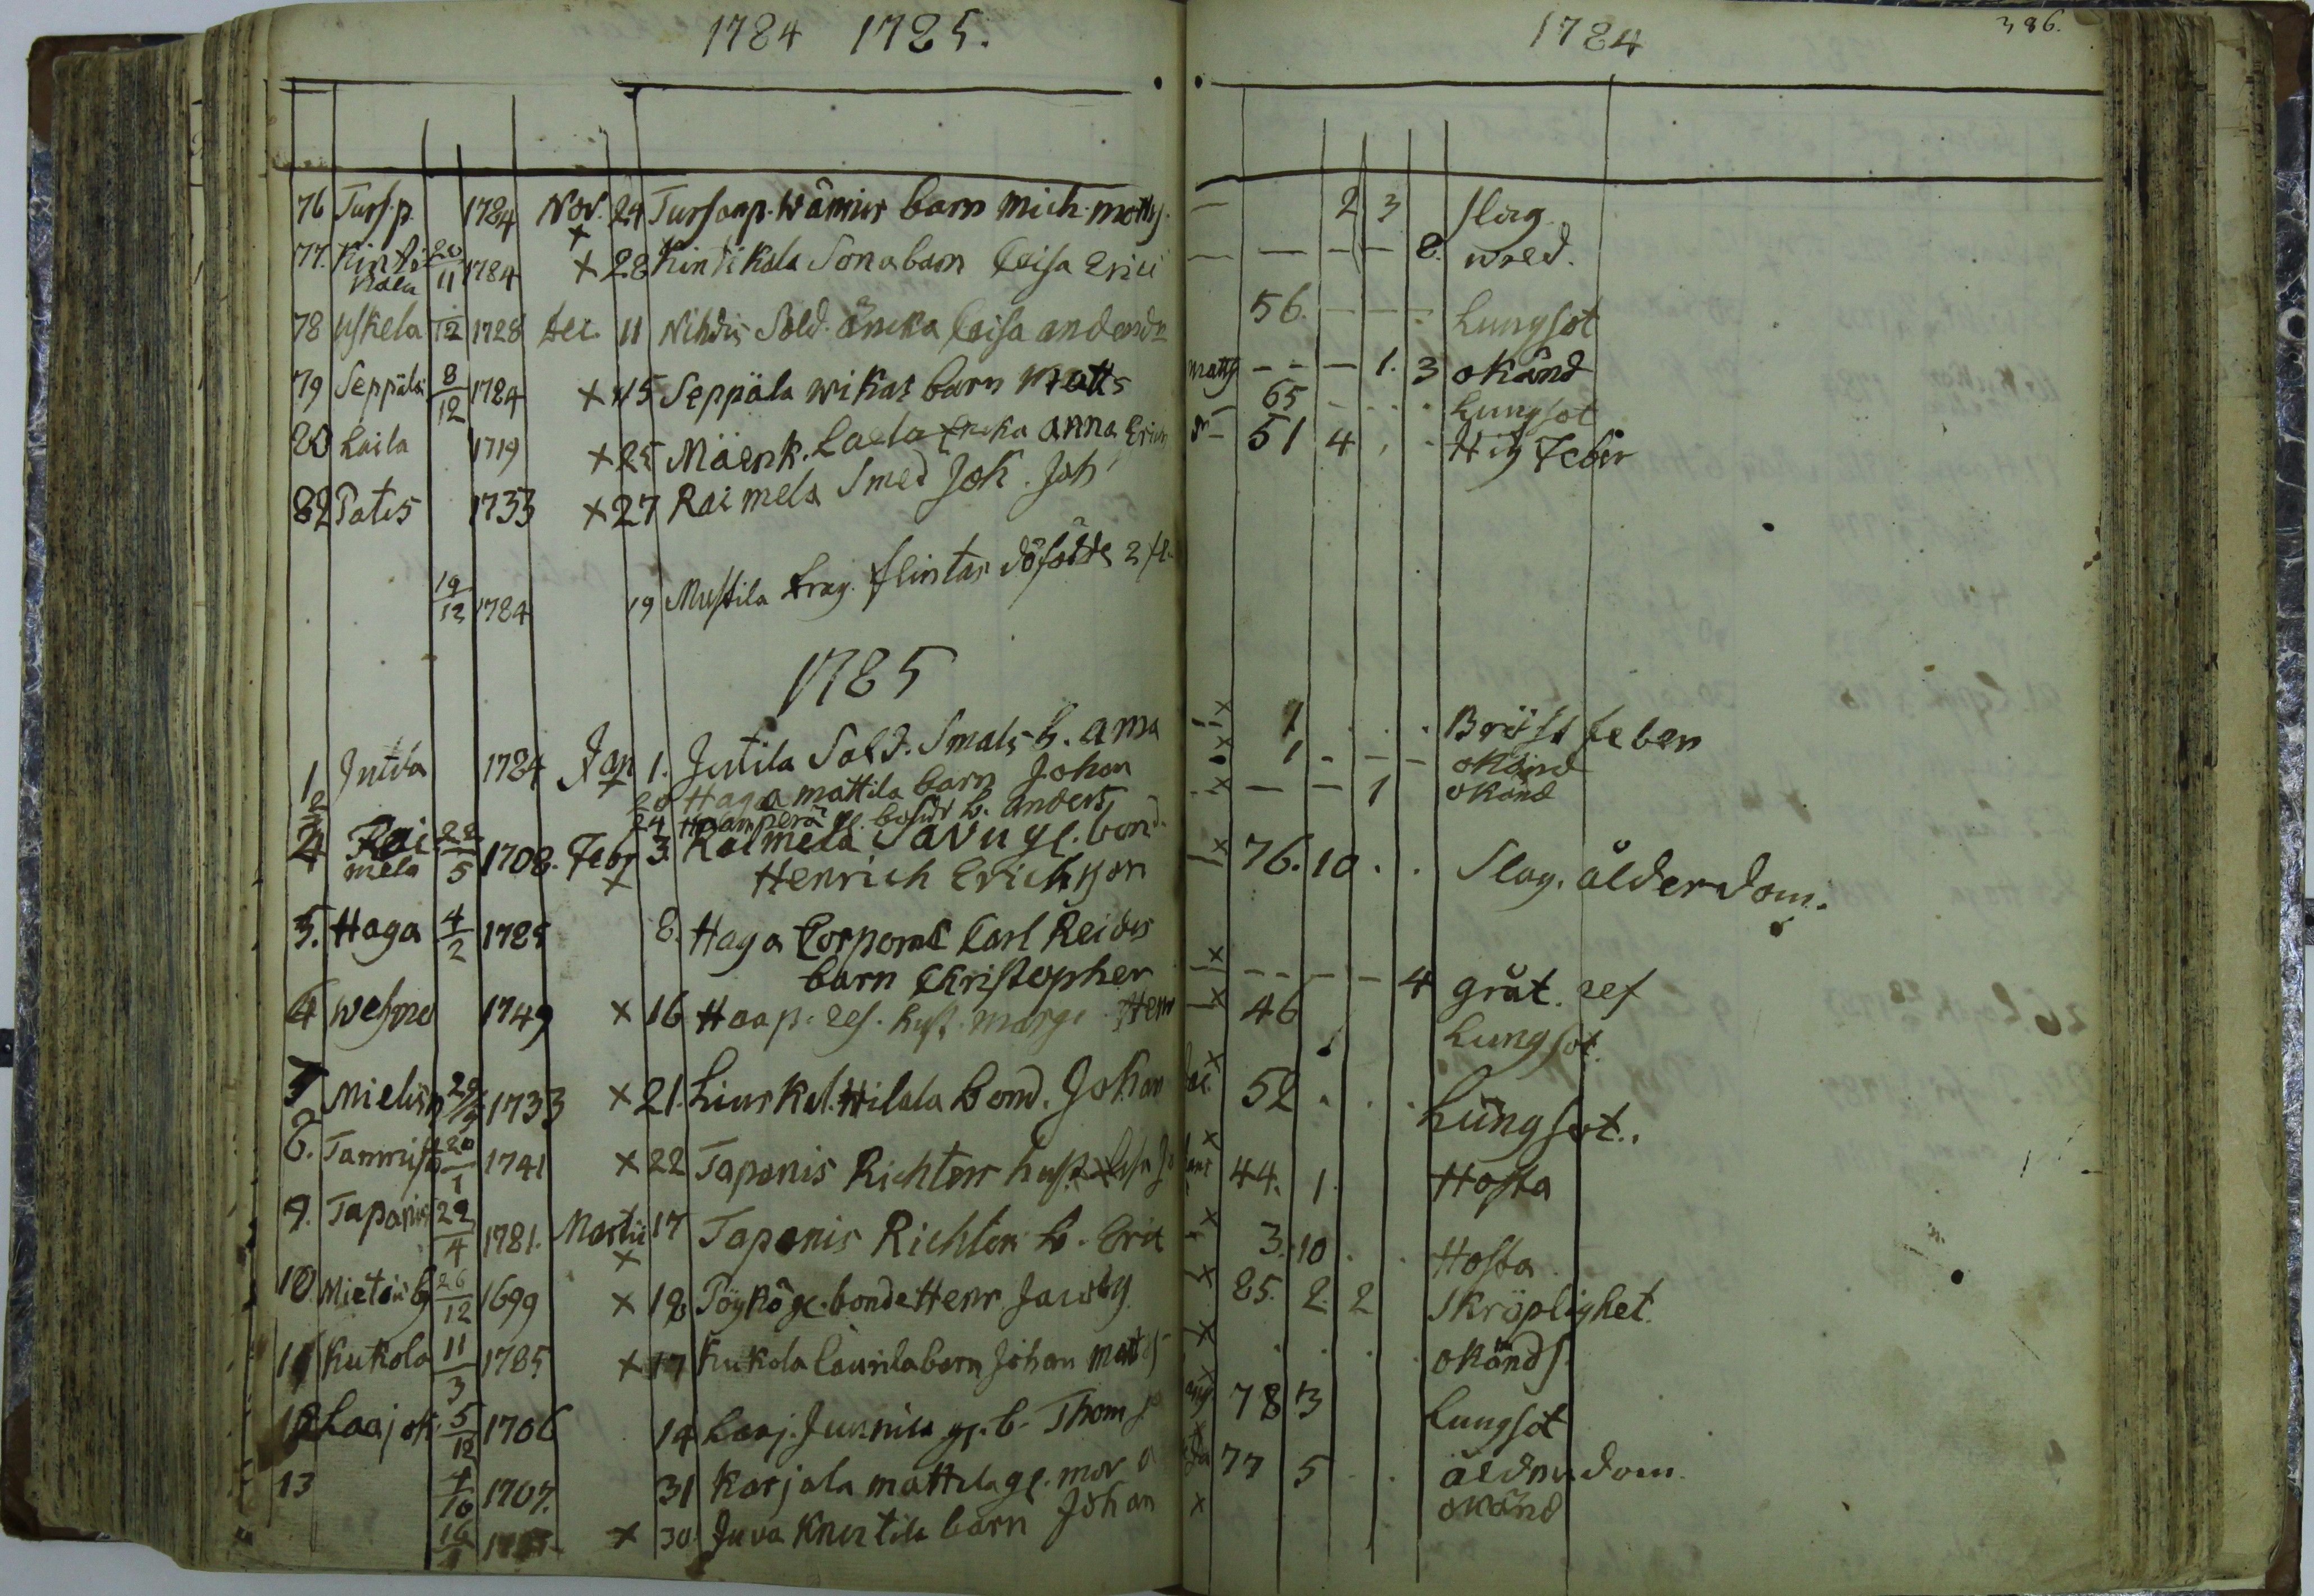 1784 1785.
1784
386.
76 Turs.p. 1784 Nov. 24 Tursanp. Wäniur barn Mich. Matts. — 2 3 slag
77. Kintikala 20/11 1784 × 28 Kintikala Sonabarn Leisa Erici — — — — 8. wred.
78 Uskela /12 1728 Dec. 11 Nihdis Sold. Äncka Caisa andersdr 56. — — Lungsot
79 Seppälä 8/12 1784 × 15 Seppäla wikas barn Matts matts — — — 1. 3 okänd
80 Laila 1719 × 25 Mäenk. Laila Encka Anna Erici 65 Lungsot
82 Patis 1733 × 27 Raimela Smed Joh. Joh 51 4 Hitz Feber
19/12 1784 19 Mustila Drag. flintas döfödde 2 fl.
1785
1 Jutila 1784 Jan 1. Jutila Sold. Smals b. Anna × 1 Bröst feber
2 20 Haga mattila barn Johan × 1 — — okänd
24 Haanperä barn anders × — — 1 okänd
4 Raimela 22/5 1708. Febr 3. Raimela Savu gl. bond.
Henrich Erichson × 76. 10 . . Slag. ålderdom.
5. Haga 4/2 1785 8. Haga Corporal Carl Reiders
barn Christopher × — — — — 4 gråt. ref
6 Wesmo 1749 × 16 Haap. hust. Marge. Henr × 46 Lungsot.
7 Mielisp 1733 × 21. Liuskal. Hilala Bond. Johan × 52 . . . Lungsot.
8. Tammist 20/1 1741 × 22 Tapanis Richters hust. × 44. 1. Hosta
9. Tapanis 29/4 1781. Martii 17 Tapanis Richters b. Eric × 3. 10 . . Hosta
10. Mietois by 26/12 1699 × 18 Pöykö gl. bonde Henr Jacobs × 85. 2. 2 Skröplighet.
11 Kukola 11/3 1785 × 17 Kukola Caurila barn Johan Matts × . . . . okänds.
12 Laajok 5/12 1706 14 Laaj. Junnila gl. b. Thom × 78 3 Lungsot
13 4/10 1707. 31 Karjala mattila gl. mor × 77 5 . . ålderdom.
16/ × 30 Juva Knutila barn Johan × okänd